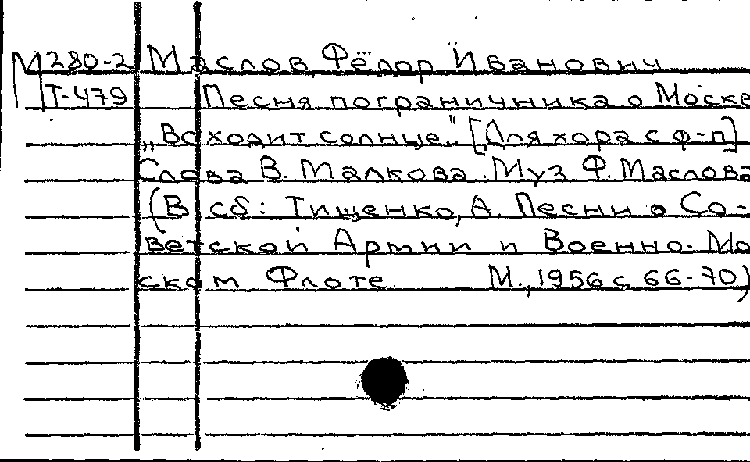 М280-2 Маслов, Фёдор Иванович
Т-479 Песня пограничника о Москве
„Восходит солнце." [Для хора с ф-п]
Слова В. Малкова. Муз Ф. Маслова
(В сб: Тищенко, А. Песни о Со-
ветской Армии и Военно-Мо
ском Флоте М., 1956 с 66-70)